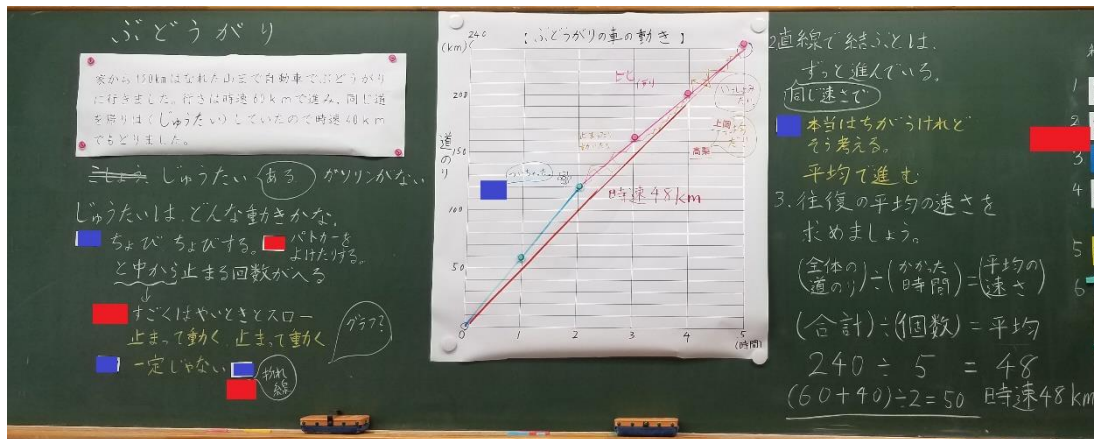 ぶどうがり
家から120kmはなれた山まで自動車でぶどうがり
に行きました。行きは時速60kmで進み、同じ道
を帰りは(じゅうたい)していたので時速40km
でもどりました。
じゅうたい ある ガソリンがない
じゅうたいは、どんな動きかな。
ちょびちょびする。 パトカーを
よけたりする。
と中から止まる回数がへる
すごくはやいときとスロー
止まって動く 止まって動く
一定じゃない
折れ線
グラフ?
【ぶどうがりの車の動き】
(km)
240
200
150
100
50
0
1
2
3
4
5
(時間)
道のり
時速48km
2直線で結ぶとは、
ずっと進んでいる。
同じ速さで
本当はちがうけれど
そう考える。
平均で進む
3.往復の平均の速さを
求めましょう。
(全体の道のり)÷(かかった時間)=(平均の速さ)
(合計)÷(個数)=平均
240÷5=48
(60+40)÷2=50 時速48km
1
2
3
4
5
6